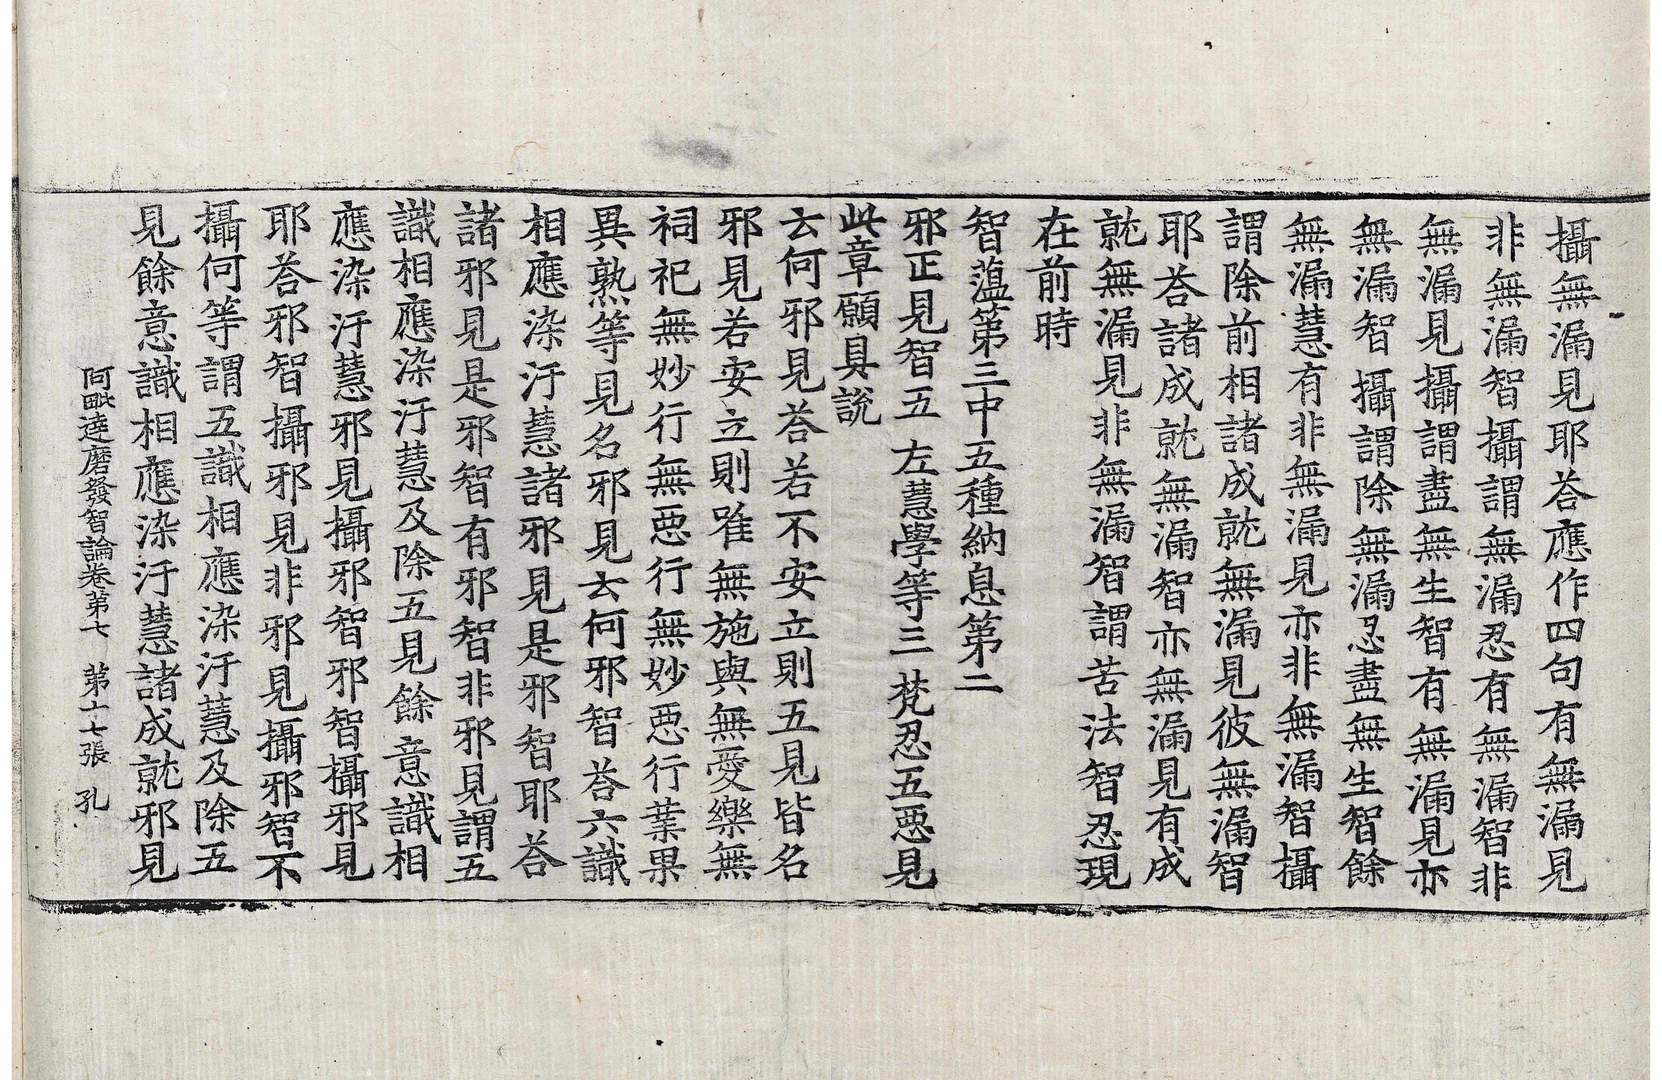 攝無漏見耶荅應作四句有無漏見
非無漏智攝謂無漏忍有無漏智非
無漏見攝謂盡無生智有無漏見亦
無漏智攝謂除無漏忍盡無生智餘
無漏慧有非無漏見亦非無漏智攝
謂除前相諸成就無漏見彼無漏智
耶荅諸成就無漏智亦無漏見有成
就無漏見非無漏智謂苦法智忍現
在前時
智蘊第三中五種納息第二
邪正見智五 左慧學等三 梵忍五惡見
此章願具說
云何邪見荅若不安立則五見皆名
邪見若安立則唯無施與無愛樂無
祠祀無妙行無惡行無妙惡行業果
異熟等見名邪見云何邪智荅六識
相應染汙慧諸邪見是邪智耶荅
諸邪見是邪智有邪智非邪見謂五
識相應染汙慧及除五見餘意識相
應染汙慧邪見攝邪智邪智攝邪見
耶荅邪智攝邪見非邪見攝邪智不
攝何等謂五識相應染汙慧及除五
見餘意識相應染汙慧諸成就邪見
阿毗達磨發智論卷第七 第十七張 孔